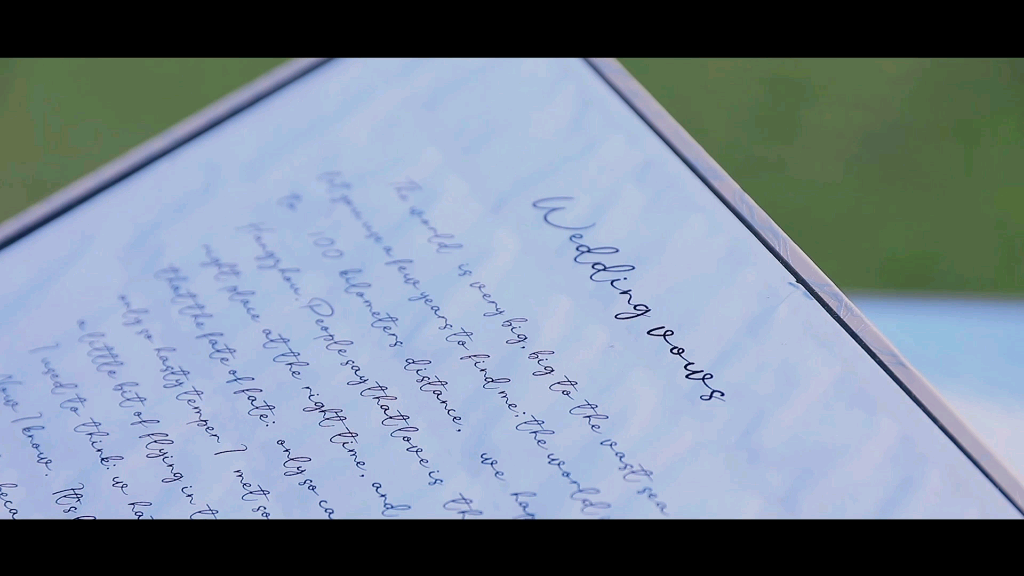 Wedding vows
The world is very big, big to the vast sea
let you use a few years to find me: the world
to 100 kilometers distance, we hap
Hangzhou. People say that love is th
right place at the right time, and
that the fate of fate: only so ca
only so hasty temper I met so
a little bit of flying in t
I used to think: w ha
Now I know. It's
beca